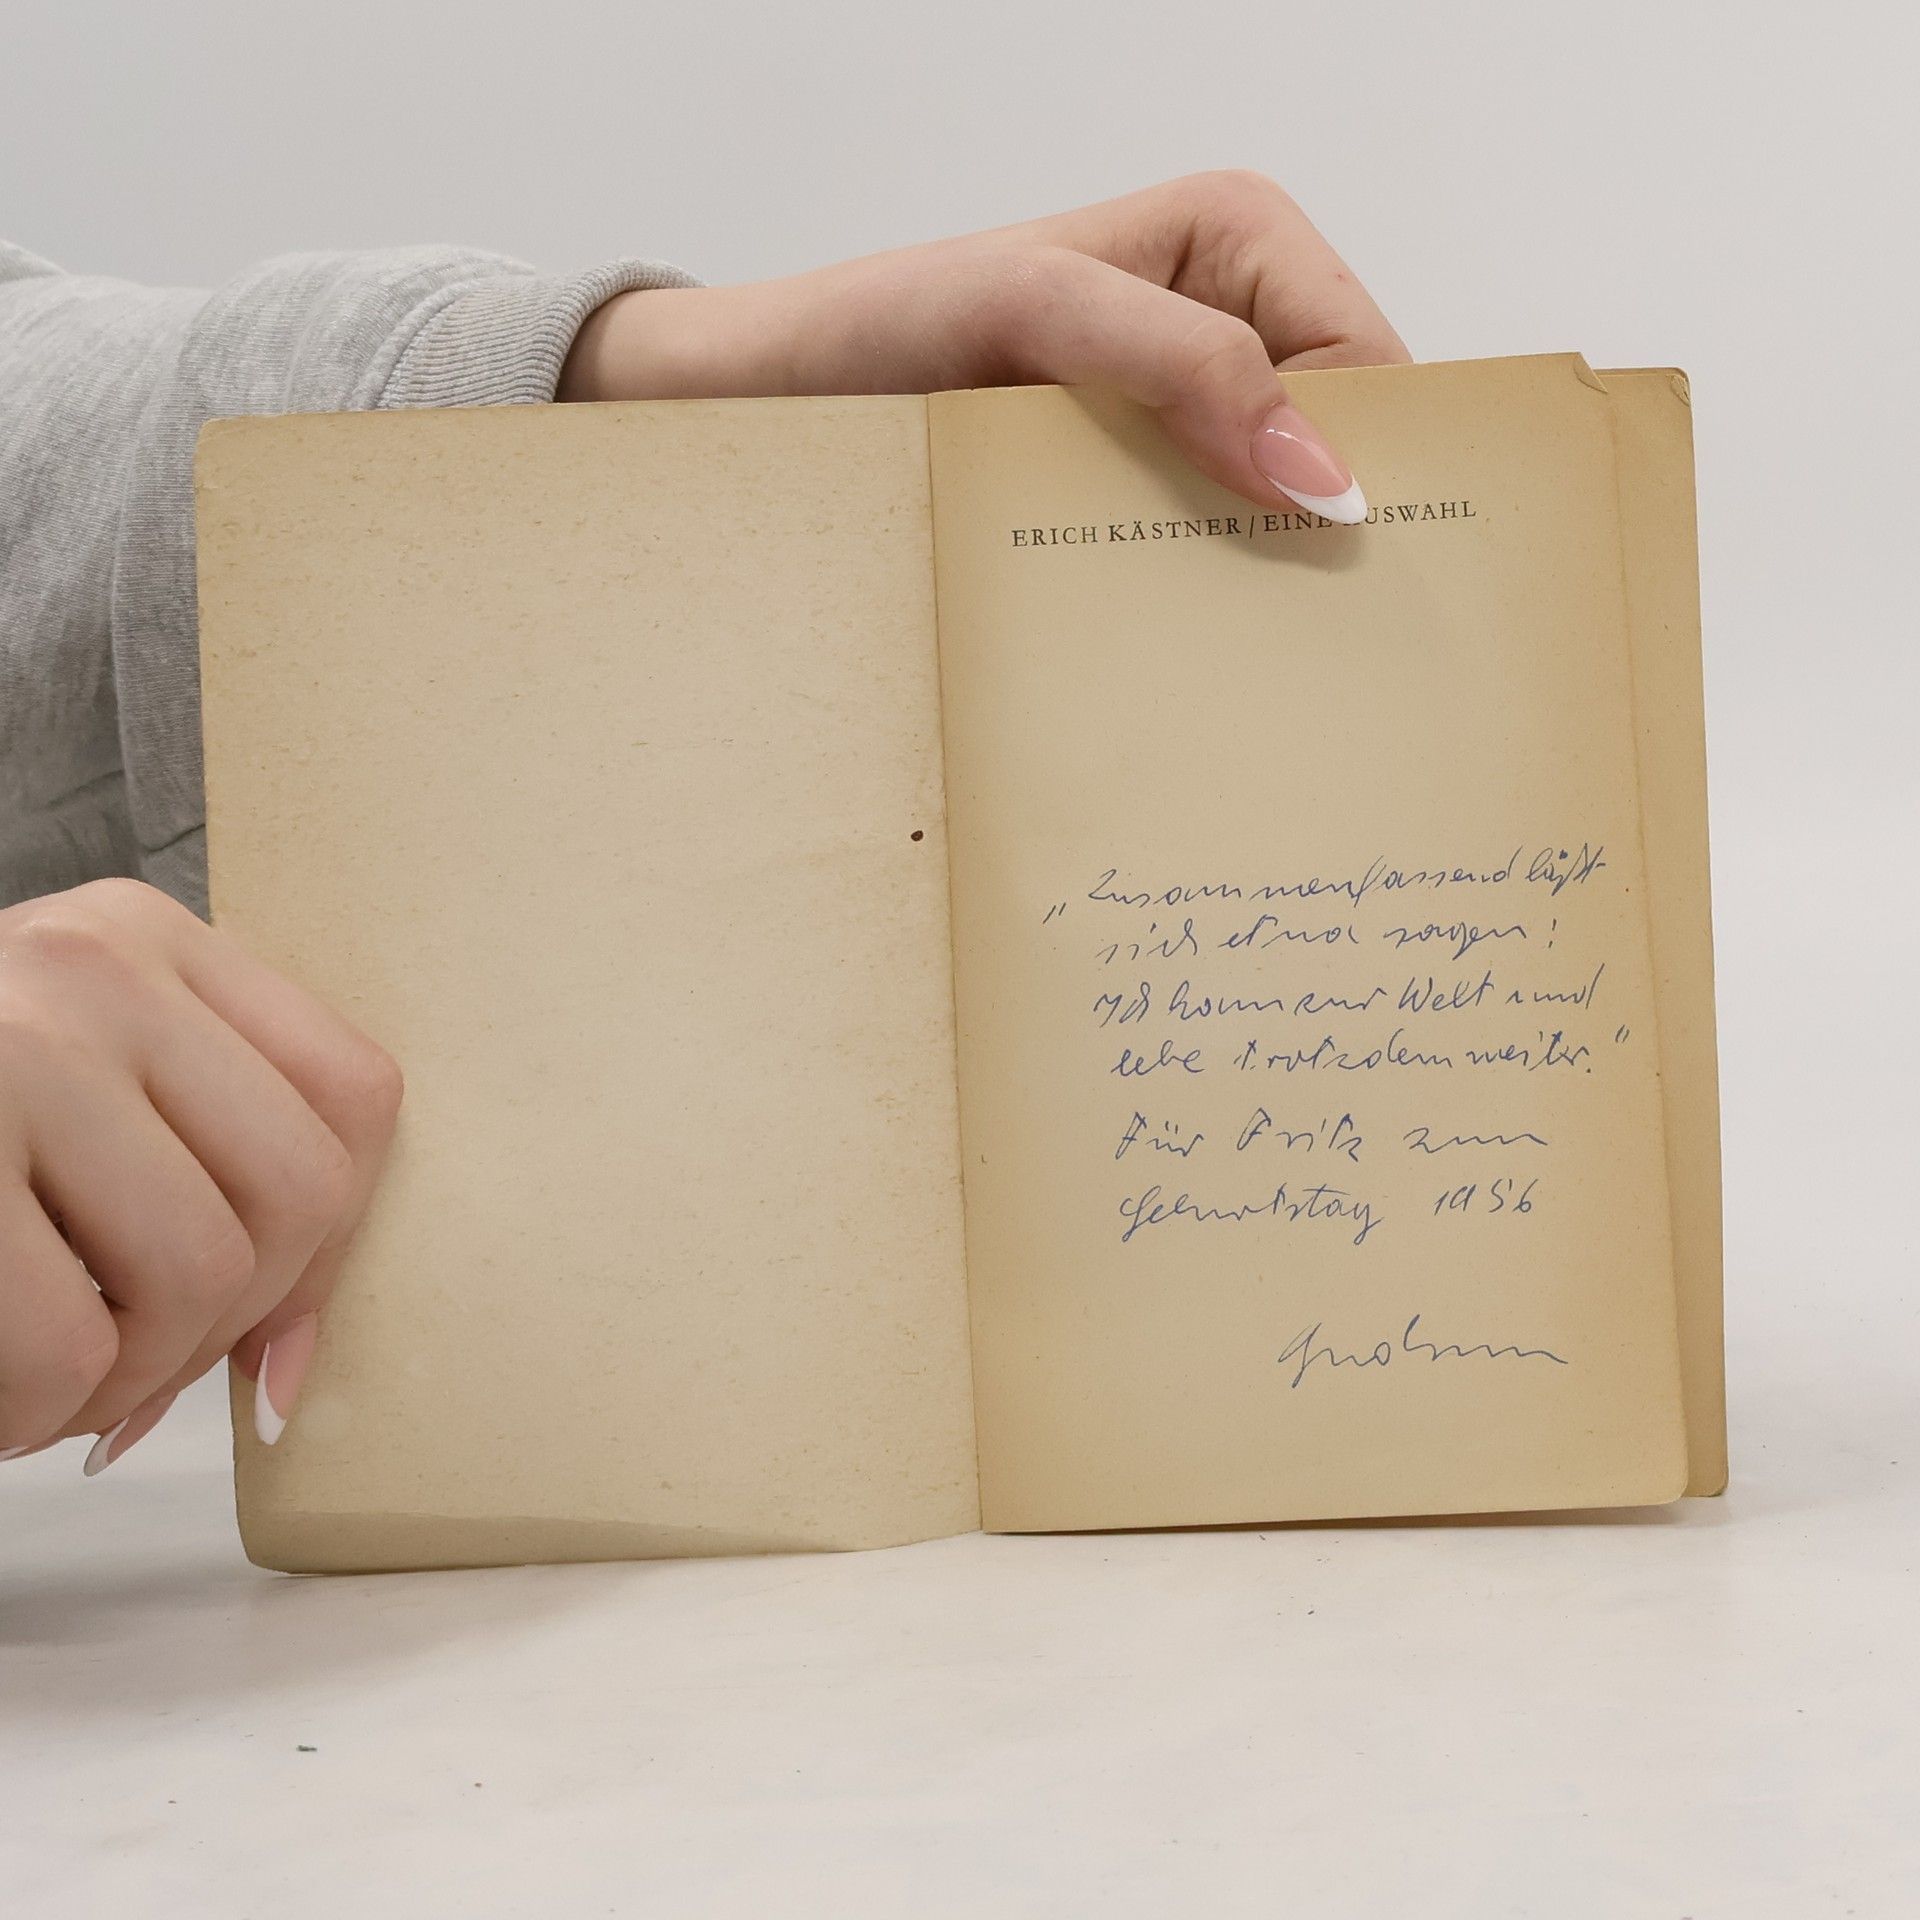 ERICH KÄSTNER / EINE AUSWAHL
„Zusammenfassend läßt
sich etwa sagen:
Ich kam zur Welt und
lebe trotzdem weiter."
Für Fritz zum
Geburtstag 1956
Gudrun